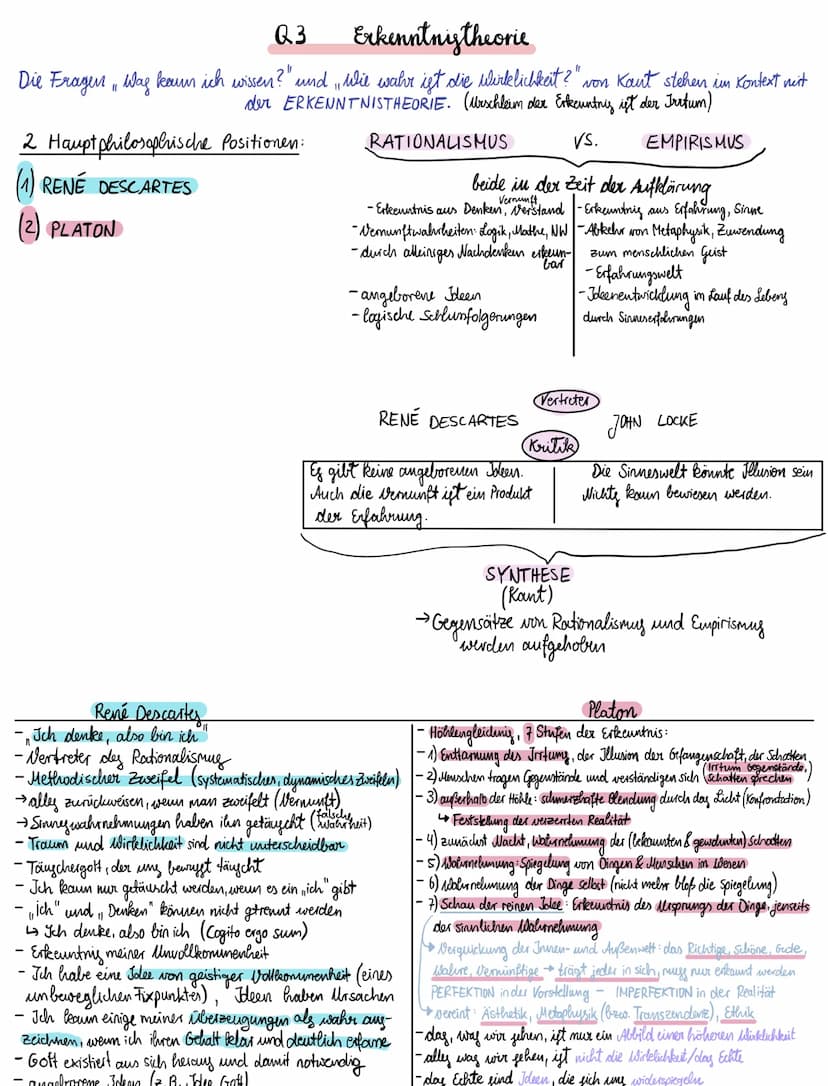 Q3 Erkenntnistheorie
Die Fragen „Was kann ich wissen?" und „Wie wahr ist die Wirklichkeit?" von Kant stehen im Kontext mit
der ERKENNTNISTHEORIE. (Urschleim der Erkenntnis ist der Irrtum)
2 Hauptphilosophische Positionen:
RATIONALISMUS VS. EMPIRISMUS
(1) RENÉ DESCARTES
(2) PLATON
beide in der Zeit der Aufklärung
Vernunft
- Erkenntnis aus Denken, Verstand
- Vernunftwahrheiten: Logik, Mathe, NW
- durch alleiniges Nachdenken erkenn-
bar
- angeborene Ideen
- logische Schlussfolgerungen
- Erkenntnis aus Erfahrung, Sinne
- Abkehr von Metaphysik, Zuwendung
zum menschlichen Geist
- Erfahrungswelt
- Ideenentwicklung im Lauf des Lebens
durch Sinneserfahrungen
Vertreter
RENÉ DESCARTES JOHN LOCKE
Kritik
Es gibt keine angeborenen Ideen.
Auch die Vernunft ist ein Produkt
der Erfahrung.
Die Sinneswelt könnte Illusion sein
Nichts kann bewiesen werden.
SYNTHESE
(Kant)
→ Gegensätze von Rationalismus und Empirismus
werden aufgehoben
René Descartes
- „Ich denke, also bin ich"
- Vertreter des Rationalismus
- Methodischer Zweifel (systematisches, dynamisches Zweifeln)
→ alles zurückweisen, wenn man zweifelt (Vernunft)
→ Sinneswahrnehmungen haben ihn getäuscht (falsche Wahrheit)
- Traum und Wirklichkeit sind nicht unterscheidbar
- Täuschergott, der uns bewusst täuscht
- Ich kann nur getäuscht werden, wenn es ein „ich" gibt
- „ich" und „Denken" können nicht getrennt werden
↳ Ich denke, also bin ich (Cogito ergo sum)
- Erkenntnis meiner Unvollkommenheit
- Ich habe eine Idee von geistiger Vollkommenheit (eines
unbeweglichen Fixpunktes), Ideen haben Ursachen
- Ich kann einige meiner Überzeugungen als wahr aus-
zeichnen, wenn ich ihren Gehalt klar und deutlich erfasse
- Gott existiert aus sich heraus und damit notwendig
- angeborene Ideen (z.B. Idee Gott)
Platon
- Höhlengleichnis, 7 Stufen der Erkenntnis:
- 1) Enttarnung des Irrtums, der Illusion der Gefangenschaft, der Schatten
- 2) Menschen tragen Gegenstände und verständigen sich (Irrtum Gegenstände, Schatten sprechen)
- 3) außerhalb der Höhle: schmerzhafte Blendung durch das Licht (Konfrontation)
↳ Feststellung der verzerrten Realität
- 4) zunächst Nacht, Wahrnehmung der (bekannten & gewohnten) Schatten
- 5) Wahrnehmung: Spiegelung von Dingen & Menschen im Wasser
- 6) Wahrnehmung der Dinge selbst (nicht mehr bloß die Spiegelung)
- 7) Schau der reinen Idee: Erkenntnis des Ursprungs der Dinge, jenseits
der sinnlichen Wahrnehmung
↳ Verquickung der Innen- und Außenwelt: das Richtige, Schöne, Gute,
Wahre, Vernünftige → trägt jeder in sich, muss nur erkannt werden
PERFEKTION in der Vorstellung – IMPERFEKTION in der Realität
↳ vereint: Ästhetik, Metaphysik (bzw. Transzendenz), Ethik
- das, was wir sehen, ist nur ein Abbild einer höheren Wirklichkeit
- alles was wir sehen, ist nicht die Wirklichkeit/das Echte
- das Echte sind Ideen, die sich uns widerspiegeln